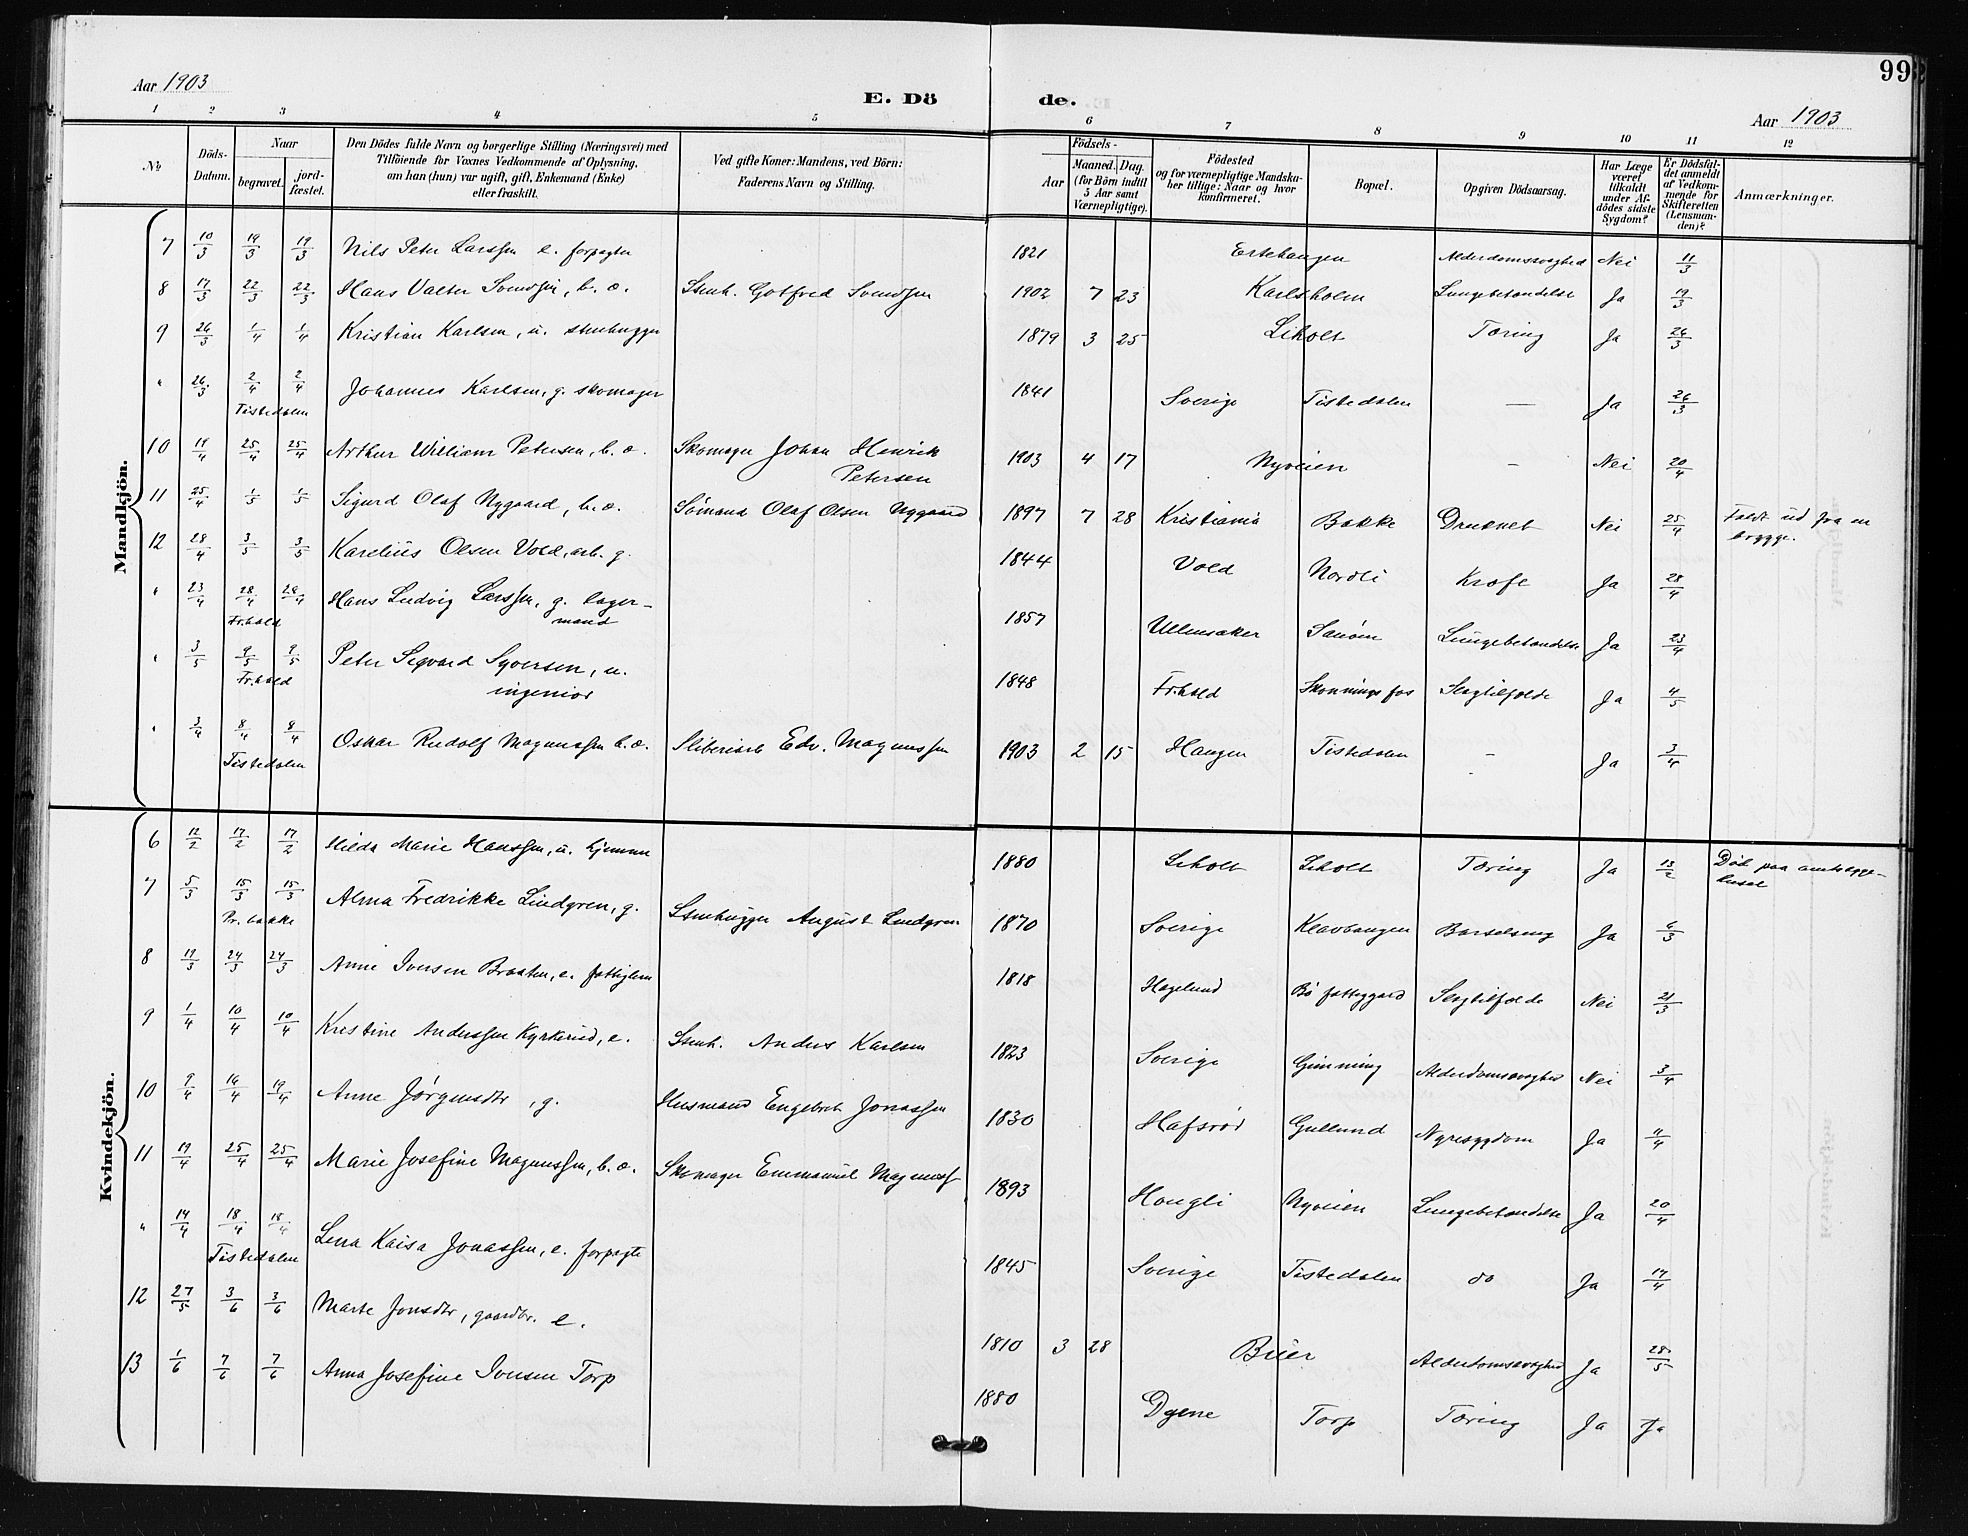 99
Aar 1903
E. Dö de.
Aar 1903
1 2 3 4 5 6 7 8 9 10 11 12
№
Döds-Datum.
Naar
begravet.
jord-fæstet.
Den Dödes fulde Navn og borgerlige Stilling (Næringsvei) med
Tilföiende for Voxnes Vedkommende af Oplysning,
om han (hun) var ugift, gift, Enkemand (Enke)
eller fraskilt.
Ved gifte Koner: Mandens, ved Börn:
Faderens Navn og Stilling.
Födsels-
Aar
Maaned. Dag.
(for Börn indtil
5 Aar samt
Værnepligtige).
Födested
og for værnepligtige Mandska-
ber tillige: Naar og hvor
konfirmeret.
Bopæl.
Opgiven Dödsaarsag.
Har Læge
været
tilkaldt
under Af-
dödes sidste
Sygdom?
Er Dödsfal-
det anmeldt
af Vedkom-
mende for
Skifteretten
(Lensman-
den)?
Anmærkninger.
Mandkjön.
7 10/3 19/3 19/3 Nils Peter Larssen e. forpagter 1821 Ertehaugen Alderdomssvaghed Nei 11/3
8 17/3 22/3 22/3 Hans Valter Svendsen, b. æ. Stenh. Gotfred Svendsen 1902 7 23 Karlsholm Lungebetændelse Ja 19/3
9 26/3 1/4 1/4 Kristian Karlsen, u. stenhugger 1879 3 25 Liholt Tæring Ja 26/3
" 26/3 2/4 2/4 Johannes Karlsen, g. skomager 1841 Sverige Tistedalen — Ja 26/3
Tistedalen
10 19/4 25/4 25/4 Arthur William Petersen, b. æ. Skomager Johan Henrik 1903 4 17 Nyveien – Nei 20/4
Petersen
11 25/4 1/5 1/5 Sigurd Olaf Nygaard, b. æ. Sömand Olaf Olsen Nygaard 1897 7 28 Kristiania Bakke Druknet Nei 25/4 Faldt ud fra en
brygge.
12 28/4 3/5 3/5 Karelius Olsen Vold, arb. g. 1844 Vold Nordli Kræft Ja 28/4
" 23/4 28/4 28/4 Hans Ludvig Larssen, g. lager-
mand 1857 Ullensaker Sanöen Lungebetændelse Ja 23/4
Fr.hald
" 3/5 9/5 9/5 Peter Sigvard Syversen, u.
ingeniør 1848 Fr.hald Skonningsfos Slagtilfælde Ja 4/5
Fr.hald
" 3/4 8/4 8/4 Oskar Rudolf Magnussen b. æ. Sliberiarb Edv. Magnussen 1903 2 15 Haugen Tistedalen – Ja 3/4
Tistedalen
Kvindekjön.
6 12/2 17/2 17/2 Hilda Marie Hanssen, u. hjemme 1880 Liholt Liholt Tæring Ja 13/2 Död paa amtssyge-
huset
7 5/3 15/3 15/3 Alma Fredrikke Lindgren, g. Stenhugger August Lindgren 1870 Sverige Barselseng Ja 6/3
Pr. bakke
8 19/3 24/3 24/3 Anne Iversen Braaten, e. fattiglem 1818 Hagelund Bö fattiggaard Slagtilfælde Nei 21/3
9 1/4 10/4 10/4 Kristine Anderssen Kyrkerud, e. Stenh. Anders Karlsen 1823 Sverige Gimming Alderdomssvaghed Nei 3/4
10 9/4 16/4 19/4 Anne Jørgensdtr, g. Husmand Engebret Jonassen 1830 Hafsröd Gullund Nyresygdom Ja 11/4
11 19/4 25/4 25/4 Marie Josefine Magnussen, b. æ. Skomager Emmanuel Magnuss 1893 Hougli Nyveien Lungebetændelse Ja 20/4
" 14/4 18/4 18/4 Lena Kaisa Jonassen, e. forpagte 1845 Sverige Tistedalen do Ja 17/4
Tistedalen
12 27/5 3/6 3/6 Marte Jonsdtr, gaardbr. e. 1810 3 28 Buer Alderdomssvaghed Ja 28/5
13 1/6 7/6 7/6 Anna Josefine Iversen Torp 1880 Dyene Torp Tæring Ja Ja